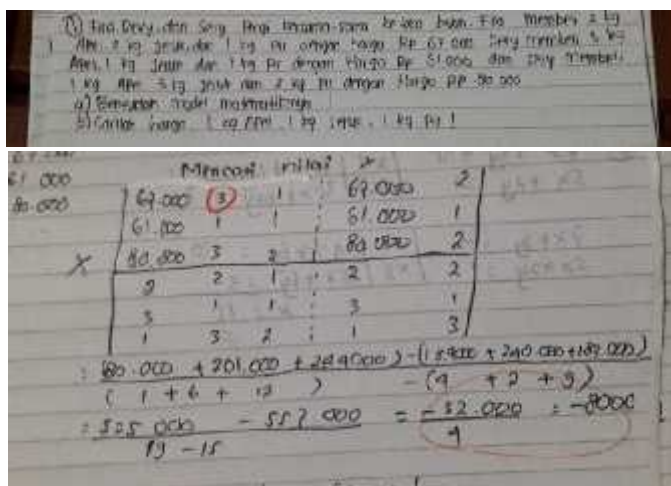 ① Fira, Devy, dan Sey Pergi bersama-sama ke toko buah. Fira membeli 2 kg
Apel, 2 kg jeruk, dan 1 kg Pir dengan harga Rp 67.000 Devy membeli 3 kg
Apel, 1 kg jeruk dan 1 kg Pir dengan Harga Rp 61.000 dan membeli
1 kg Apel 3 kg jeruk dan 2 kg Pir dengan Harga Rp 80.000
a) model matematikanya
b) Carilah harga 1 kg Apel, 1 kg jeruk, 1 kg Pir !
61 000
80.000
Mencari nilai x
67.000 3 1 : 67.000 2
61.000 1 1 : 61.000 1
X 80.000 3 2 : 80.000 2
2 2 1 : 2 2
3 1 1 : 3 1
1 3 2 : 1 3
= (80.000 + 201.000 + 244000) - ( + 240.000 + )
( 1 + 6 + 12 ) - (4 + 2 + 9)
= 525 000 - 557.000 = -32.000 = -8000
19 - 15 4